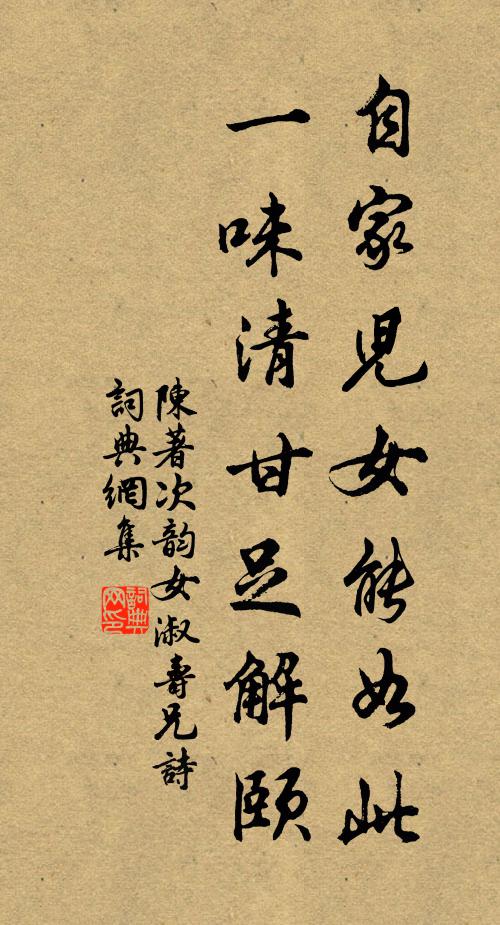 自家兒女能如此
一味清甘足解頤
陳著次韵女淑壽兄詩
詞典網集
詞典
网印